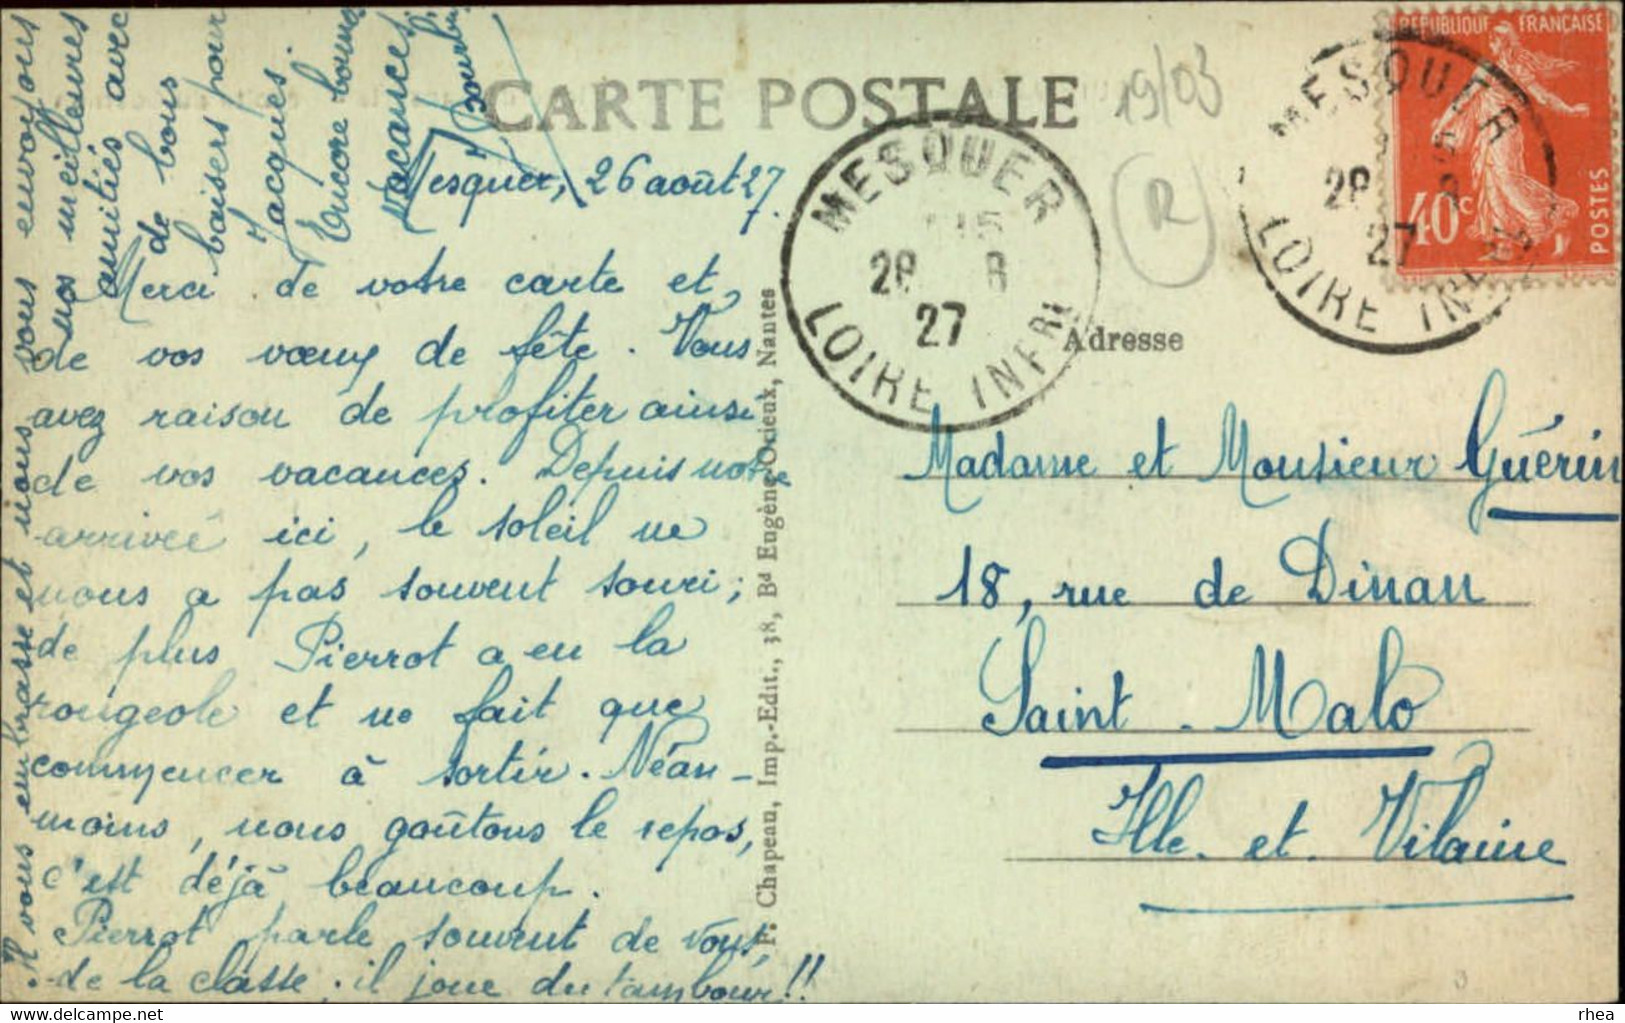 CARTE POSTALE
19/03
R
RÉPUBLIQUE FRANÇAISE
40c
POSTES
MESQUER
28 8
27
LOIRE INFRE
MESQUER
28 8
27
LOIRE INFRE
Mesquer, 26 août 27.
Merci de votre carte et
de vos vœux de fête. Vous
avez raison de profiter ainsi
de vos vacances. Depuis notre
arrivée ici, le soleil ne
nous a pas souvent souri ;
de plus Pierrot a eu la
rougeole et ne fait que
commencer à sortir. Néan-
moins, nous goûtons le repos,
c'est déjà beaucoup.
Pierrot parle souvent de vous,
de la classe ; il joue du tambour !!
Il vous embrasse et nous vous envoyons
nos meilleures
amitiés avec
de bons
baisers pour
Jacques.
Encore bonnes
vacances.
J Bourlu
F. Chapeau, Imp.-Edit., 38, Bd Eugène-Orieux, Nantes
Adresse
Madame et Monsieur Guérin
18, rue de Dinan
Saint-Malo
Ille-et-Vilaine
rhea